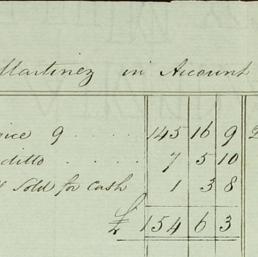 Martinez in Account
oice 9 . . . . 145 16 9
ditto . . . 7 5 10
Sold for Cash 1 3 8
£ 154 6 3